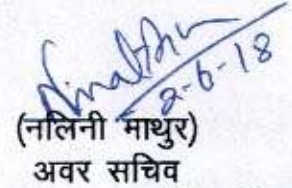 2-6-18
(नलिनी माथुर)
अवर सचिव